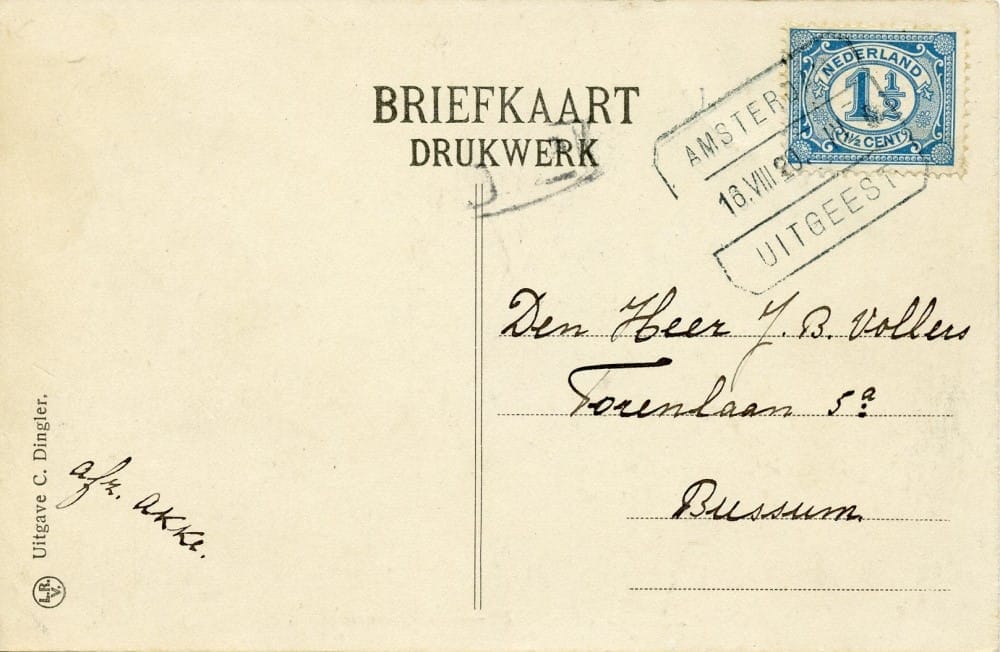 BRIEFKAART
DRUKWERK
NEDERLAND
1½
1½ CENT
AMSTER
16.VIII 20
UITGEEST
Den Heer J. B. Vollers
Torenlaan 5a
Bussum.
afz. Akke.
Uitgave C. Dingler.
L.R.
V.